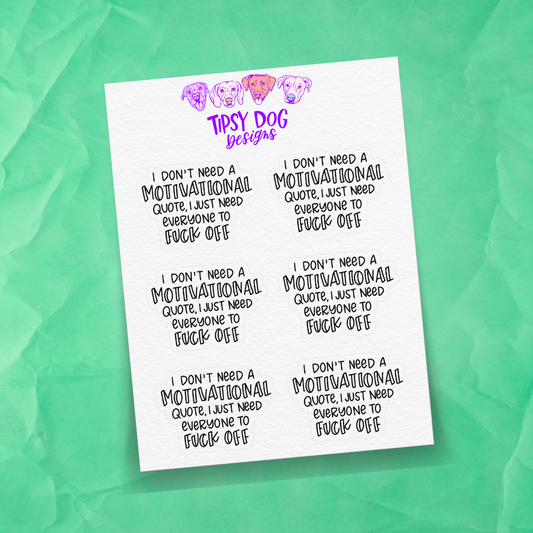 TIPSY DOG
Designs
I DON'T NEED A
MOTIVATIONAL
QUOTE, I JUST NEED
EVERYONE TO
FUCK OFF
I DON'T NEED A
MOTIVATIONAL
QUOTE, I JUST NEED
EVERYONE TO
FUCK OFF
I DON'T NEED A
MOTIVATIONAL
QUOTE, I JUST NEED
EVERYONE TO
FUCK OFF
I DON'T NEED A
MOTIVATIONAL
QUOTE, I JUST NEED
EVERYONE TO
FUCK OFF
I DON'T NEED A
MOTIVATIONAL
QUOTE, I JUST NEED
EVERYONE TO
FUCK OFF
I DON'T NEED A
MOTIVATIONAL
QUOTE, I JUST NEED
EVERYONE TO
FUCK OFF